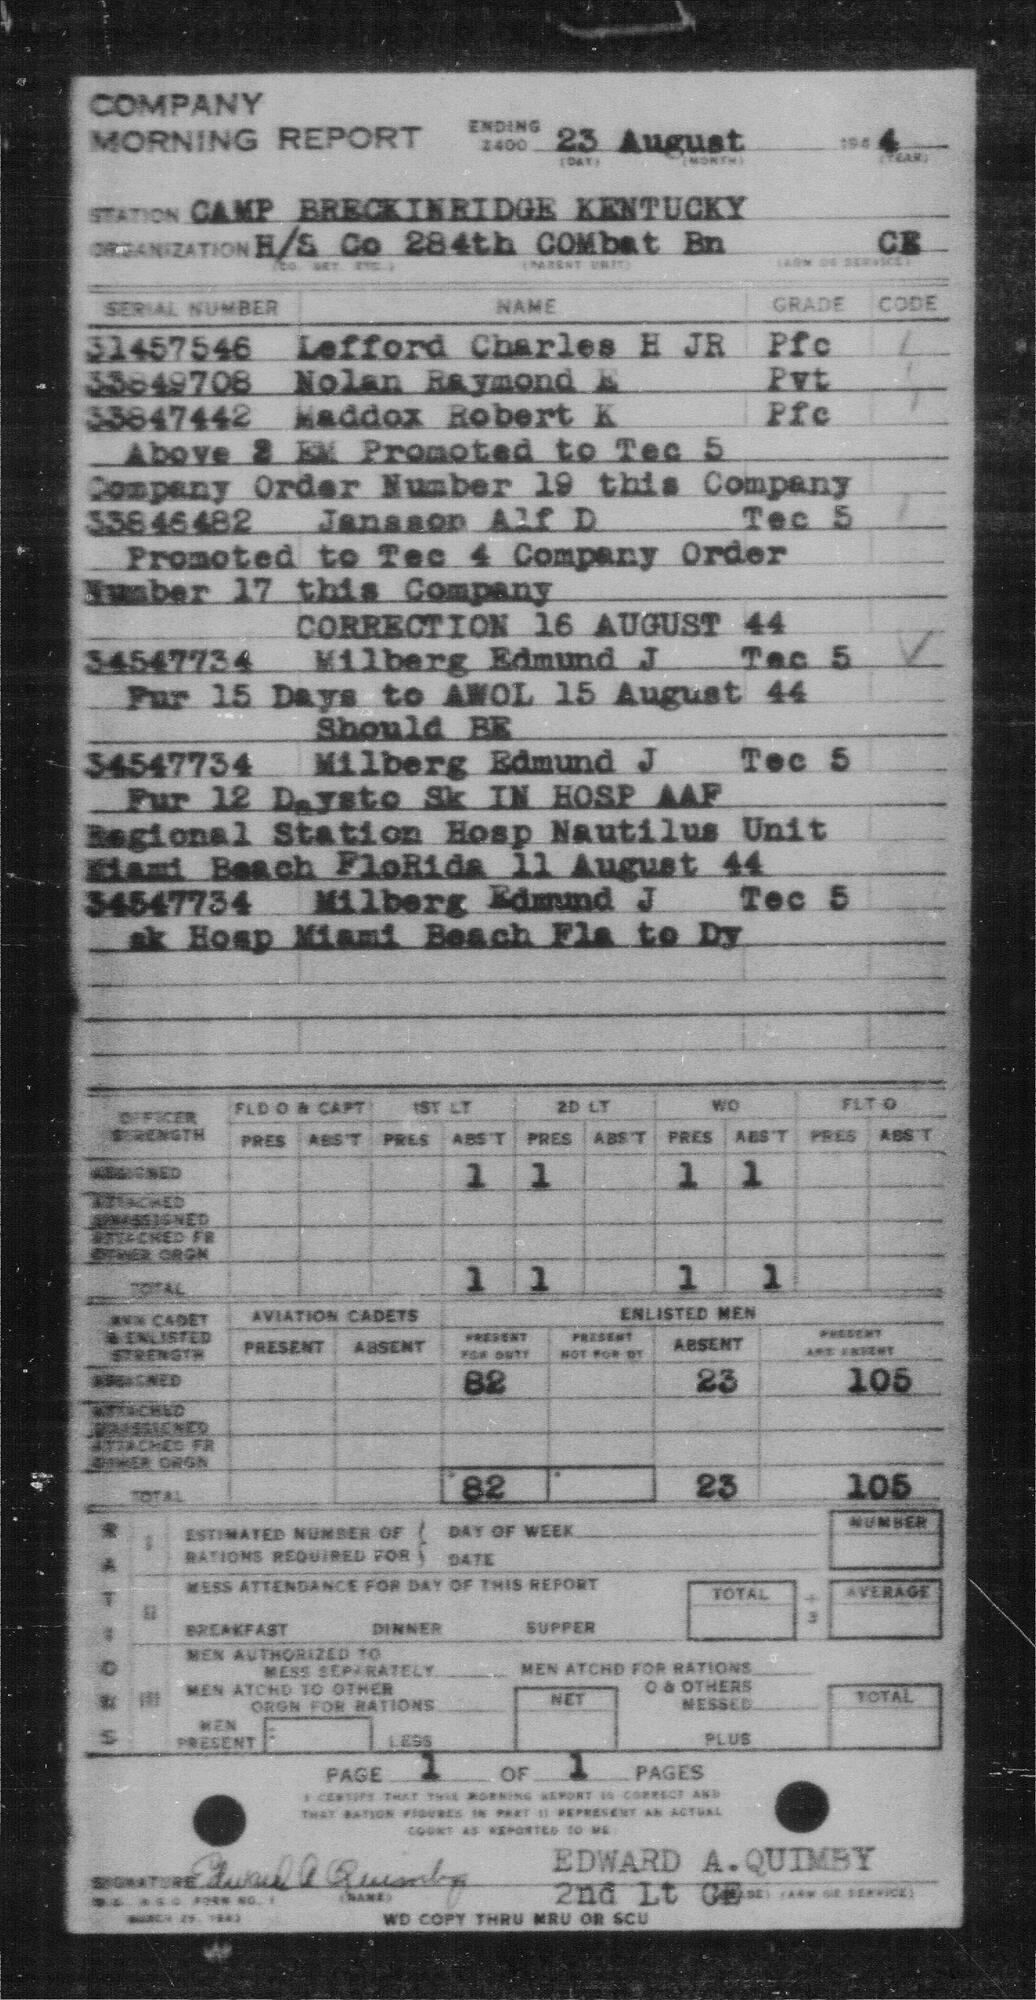 COMPANY
MORNING REPORT ENDING 2400 23 August 1944
(DAY) (MONTH) (YEAR)
STATION CAMP BRECKINRIDGE KENTUCKY
ORGANIZATION H/S Co 284th COMbat Bn CE
(CO. DET. ETC.) (PARENT UNIT) (ARM OR SERVICE)
SERIAL NUMBER NAME GRADE CODE
31457546 Lefford Charles H JR Pfc
33849708 Nolan Raymond E Pvt
33847442 Maddox Robert K Pfc
Above EM Promoted to Tec 5
Company Order Number 19 this Company
33846482 Jansson Alf D Tec 5
Promoted to Tec 4 Company Order
Number 17 this Company
CORRECTION 16 AUGUST 44
34547734 Milberg Edmund J Tec 5 ✓
Fur 15 Days to AWOL 15 August 44
Should BE
34547734 Milberg Edmund J Tec 5
Fur 12 Daysto Sk IN HOSP AAF
Regional Station Hosp Nautilus Unit
Miami Beach FloRida 11 August 44
34547734 Milberg Edmund J Tec 5
sk Hosp Miami Beach Fla to Dy
OFFICER STRENGTH FLD O & CAPT 1ST LT 2D LT WO FLT O
PRES ABS'T PRES ABS'T PRES ABS'T PRES ABS'T PRES ABS'T
ASSIGNED 1 1 1 1
ATTACHED UNASSIGNED
ATTACHED FR OTHER ORGN
TOTAL 1 1 1 1
AVN CADET & ENLISTED STRENGTH AVIATION CADETS ENLISTED MEN
PRESENT ABSENT PRESENT FOR DUTY PRESENT NOT FOR DY ABSENT PRESENT AND ABSENT
ASSIGNED 82 23 105
ATTACHED UNASSIGNED
ATTACHED FR OTHER ORGN
TOTAL 82 23 105
RATIONS
I ESTIMATED NUMBER OF RATIONS REQUIRED FOR DAY OF WEEK NUMBER
DATE
II MESS ATTENDANCE FOR DAY OF THIS REPORT TOTAL ÷ 3 AVERAGE
BREAKFAST DINNER SUPPER
III MEN AUTHORIZED TO MESS SEPARATELY MEN ATCHD FOR RATIONS
MEN ATCHD TO OTHER ORGN FOR RATIONS NET O & OTHERS MESSED TOTAL
MEN PRESENT LESS PLUS
PAGE 1 OF 1 PAGES
I CERTIFY THAT THIS MORNING REPORT IS CORRECT AND
THAT RATION FIGURES IN PART II REPRESENT AN ACTUAL
COUNT AS REPORTED TO ME
EDWARD A. QUIMBY
SIGNATURE Edward A Quimby 2nd Lt CE
(NAME) (GRADE) (ARM OR SERVICE)
W.D. A.G.O. FORM NO. 1
MARCH 29, 1943
WD COPY THRU MRU OR SCU